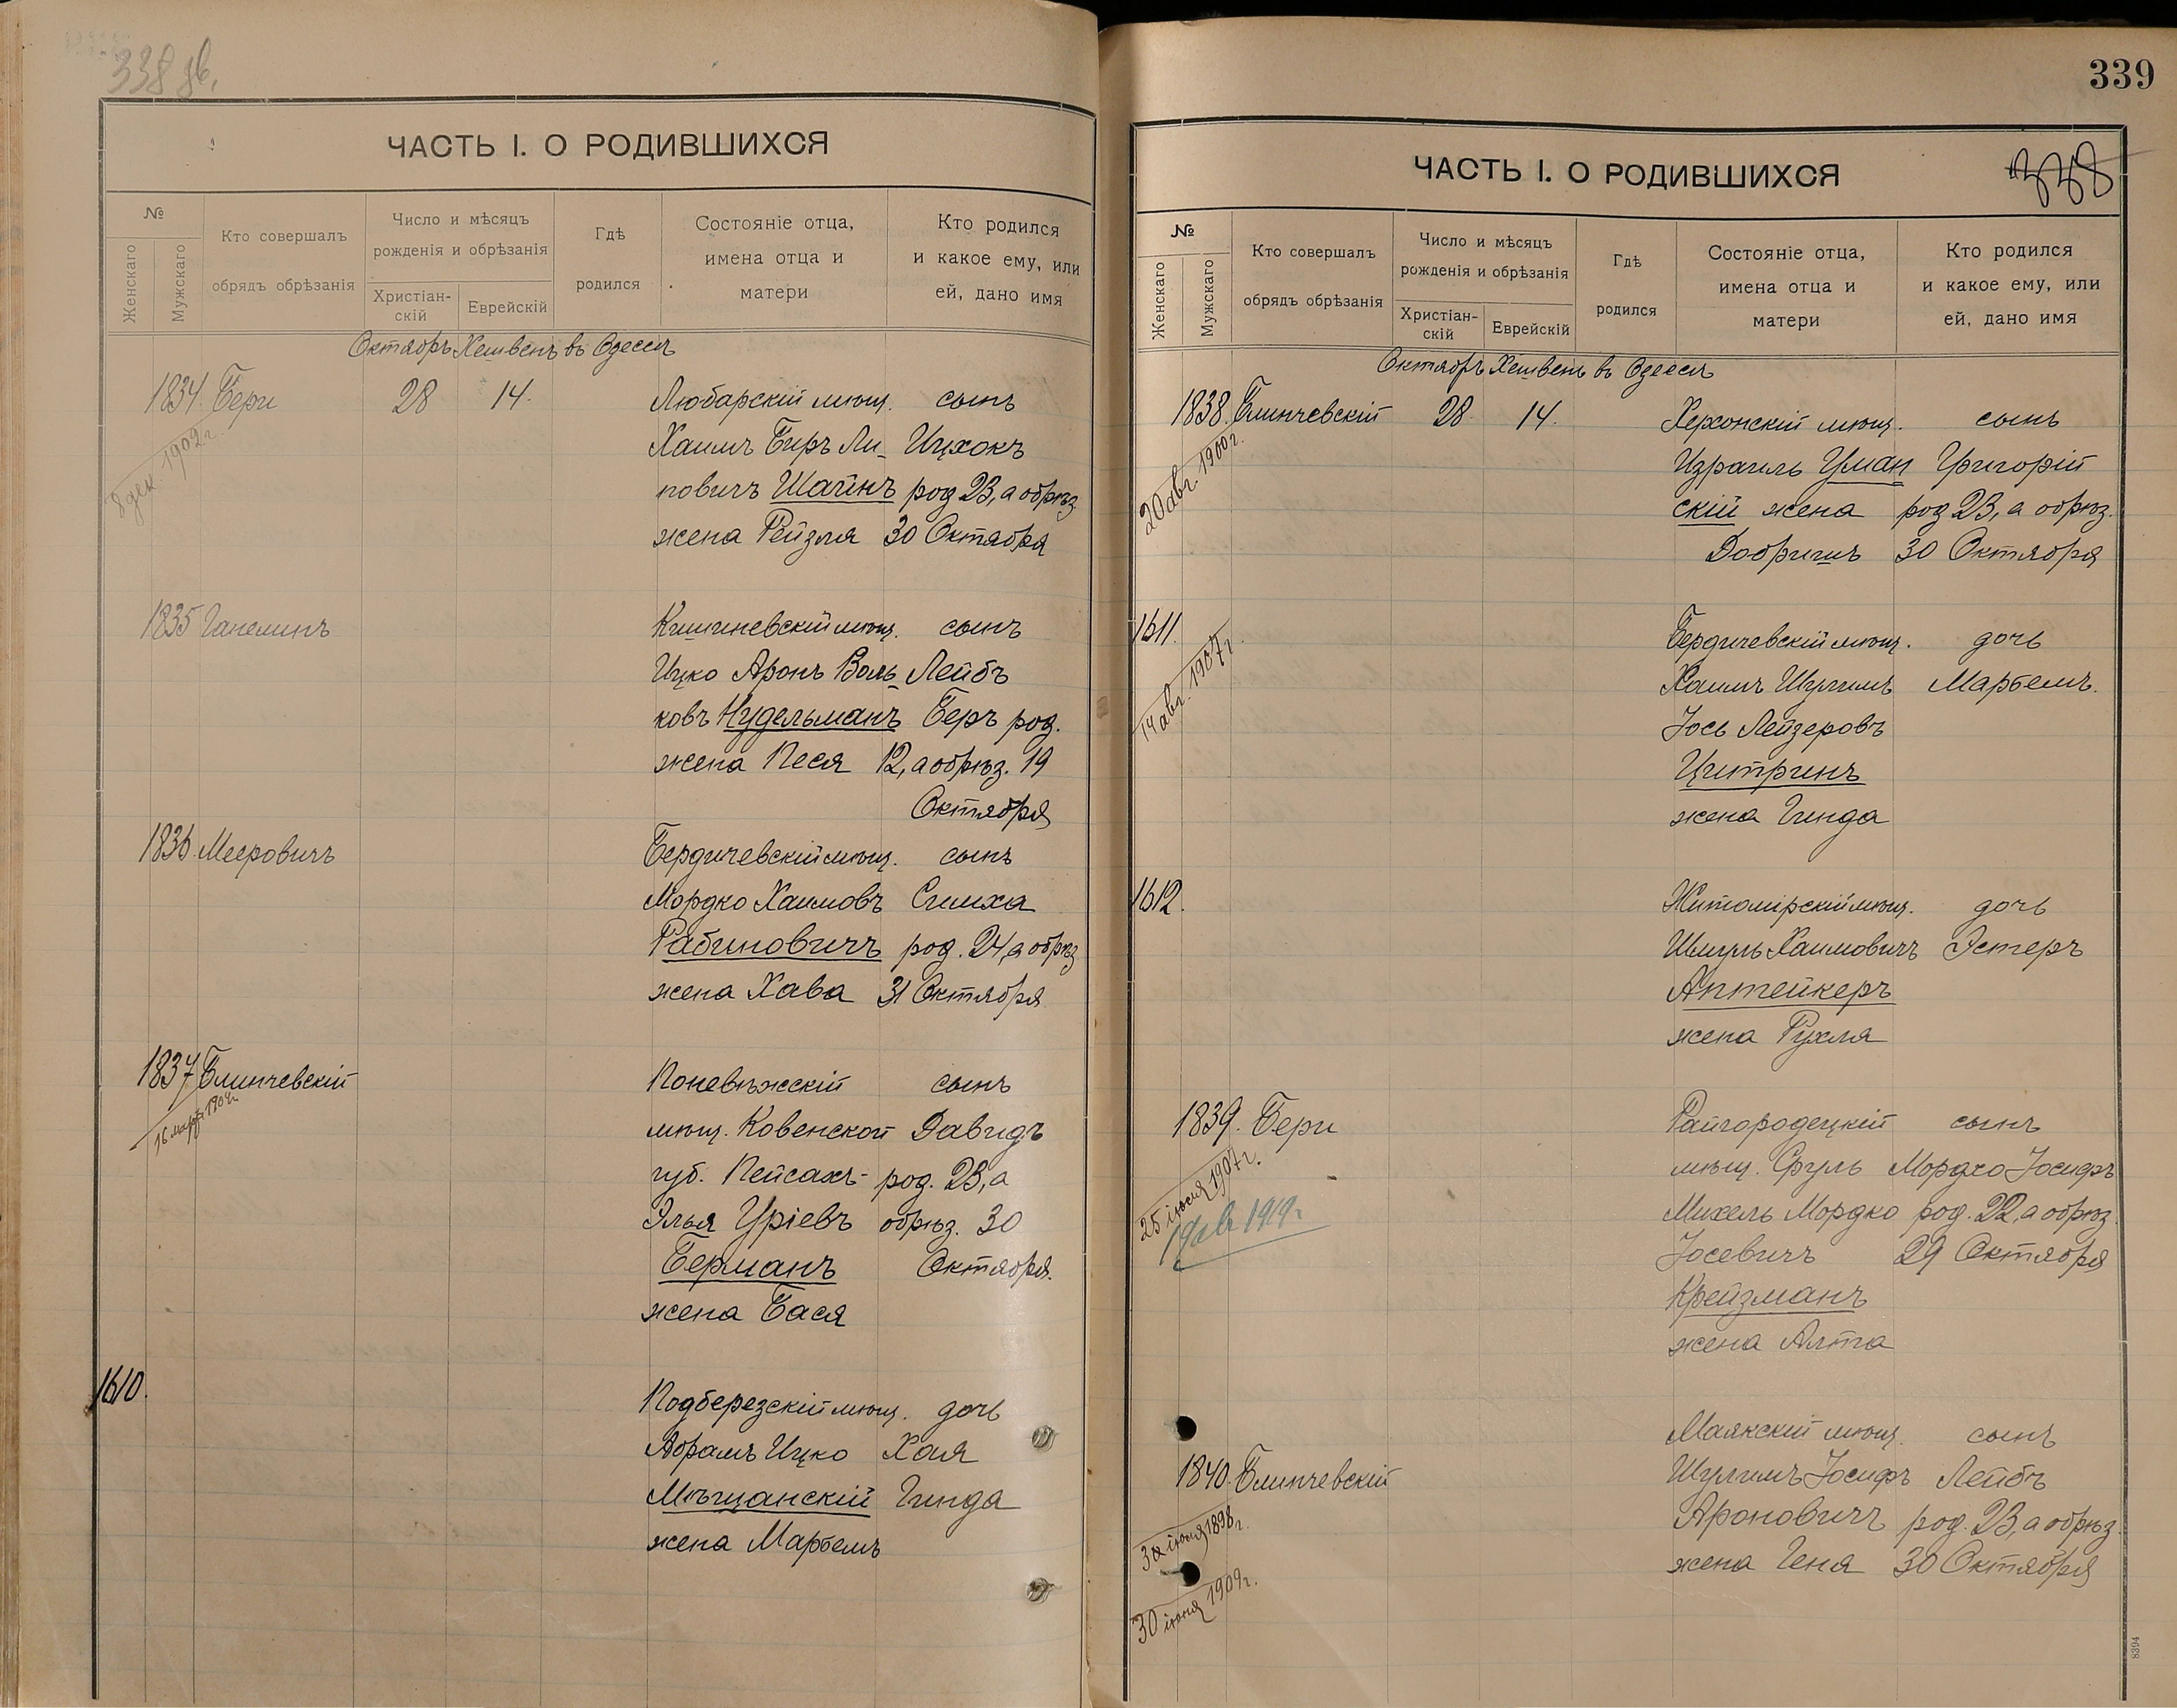 338 об.
ЧАСТЬ I. О РОДИВШИХСЯ
№
Женскаго
Мужскаго
Кто совершалъ
обрядъ обрѣзанія
Число и мѣсяцъ
рожденія и обрѣзанія
Христіан-
скій
Еврейскій
Гдѣ
родился
Состояніе отца,
имена отца и
матери
Кто родился
и какое ему, или
ей, дано имя
Октябрь Хешвенъ въ Одессѣ
1834. Бери 28 14. Любарскій мѣщ. сынъ
8 дек. 1902 г.
Хаимъ Беръ Ли- Ицхокъ
повичъ Шайнъ род 23, а обрѣз.
жена Рейзля 30 Октября
1835 Ганелинъ Кишиневскій мѣщ. сынъ
Ицко Аронъ Воль- Лейбъ
ковъ Нудельманъ Беръ род.
жена Песя 12, а обрѣз. 19
Октября
1836. Мееровичъ Бердичевскій мѣщ. сынъ
Мордко Хаимовъ Симха
Рабиновичъ род. 24, а обрѣз
жена Хава 31 Октября
1837 Блинчевскій Поневѣжскій сынъ
16 марта 1904 г.
мѣщ. Ковенской Давидъ
губ. Пейсахъ- род. 23, а
Элья Уріевъ обрѣз. 30
Берманъ Октября.
жена Бася
1610. Подберезскій мѣщ. дочь
Абрамъ Ицко Хая
Мѣщанскій Гинда
жена Марьемъ
339
338
ЧАСТЬ I. О РОДИВШИХСЯ
№
Женскаго
Мужскаго
Кто совершалъ
обрядъ обрѣзанія
Число и мѣсяцъ
рожденія и обрѣзанія
Христіан-
скій
Еврейскій
Гдѣ
родился
Состояніе отца,
имена отца и
матери
Кто родился
и какое ему, или
ей, дано имя
Октябрь Хешвень въ Одессѣ
1838. Блинчевскій 28 14. Херсонскій мѣщ. сынъ
20 авг. 1900 г.
Израиль Уман Григорій
скій жена род 23, а обрѣз.
Добришъ 30 Октября
1611. Бердичевскій мѣщ. дочь
14 авг. 1907 г.
Хаимъ Шулимъ Марьемъ.
Іось Лейзеровъ
Цитринъ
жена Гинда
1612. Житомірскій мѣщ. дочь
Шмуль Хаимовичъ Эстеръ
Аптейкеръ
жена Рухля
1839. Бери Райгородецкій сынъ
25 іюля 1907 г.
1919 г.
мѣщ. Сруль Мордко Іосифъ
Михель Мордко род. 22, а обрѣз.
Іосевичъ 29 Октября
Крейзманъ
жена Алта
Маякскій мѣщ. сынъ
1840. Блинчевскій Шулимъ Іосифъ Лейбъ
1898 г.
Ароновичъ род. 23, а обрѣз.
жена Геня 30 Октября
30 іюня 1909 г.
8394